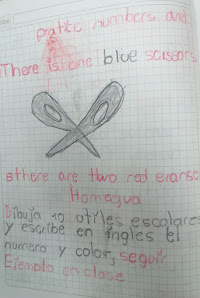 pratic numbers and
There is one blue scissors
sthere are two red eranse
Homegua
Dibuja 10 utiles escolares
y escribe en ingles el
numero y color, seguir
Ejemplo en clase